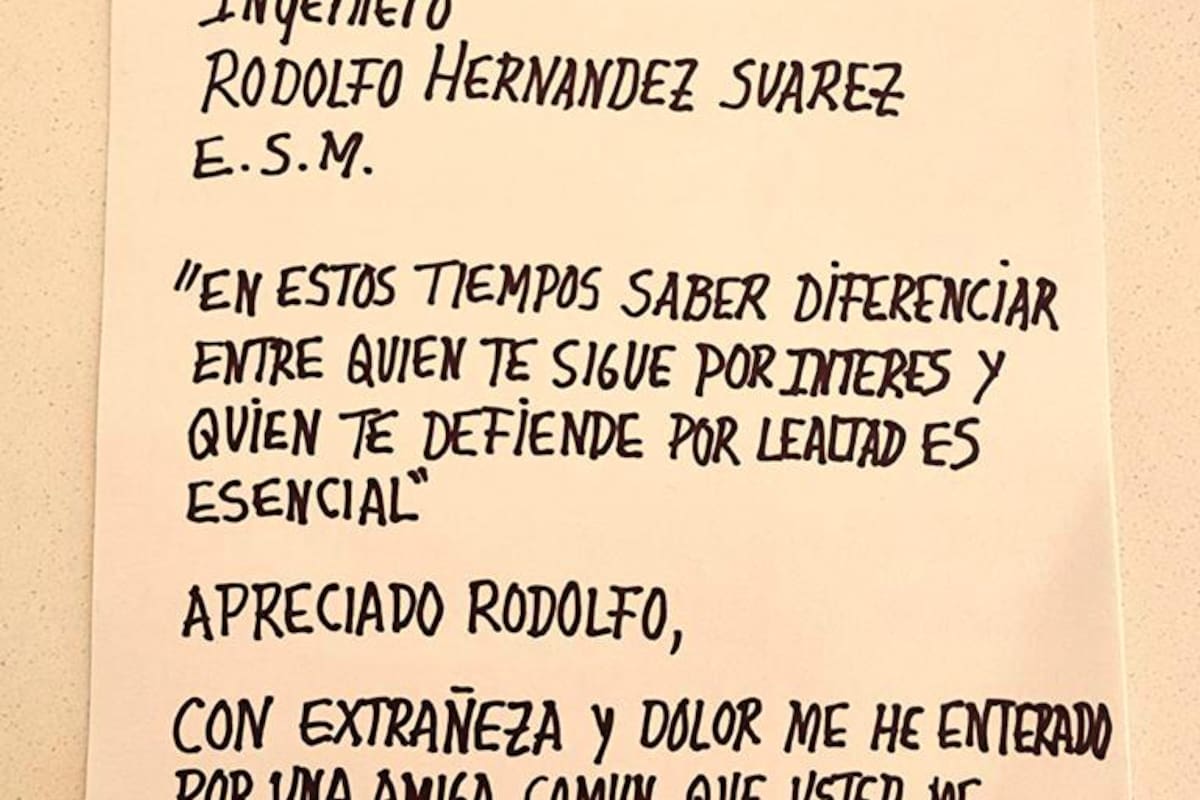 Ingeniero
RODOLFO HERNANDEZ SUAREZ
E.S.M.
"EN ESTOS TIEMPOS SABER DIFERENCIAR
ENTRE QUIEN TE SIGUE POR INTERES Y
QUIEN TE DEFIENDE POR LEALTAD ES
ESENCIAL"
APRECIADO RODOLFO,
CON EXTRAÑEZA Y DOLOR ME HE ENTERADO
POR UNA AMIGA COMUN QUE USTED ME